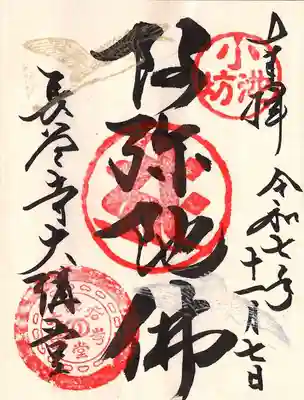 奉拝
小池坊
令和七年十一月七日
阿弥陀佛
長谷寺大講堂